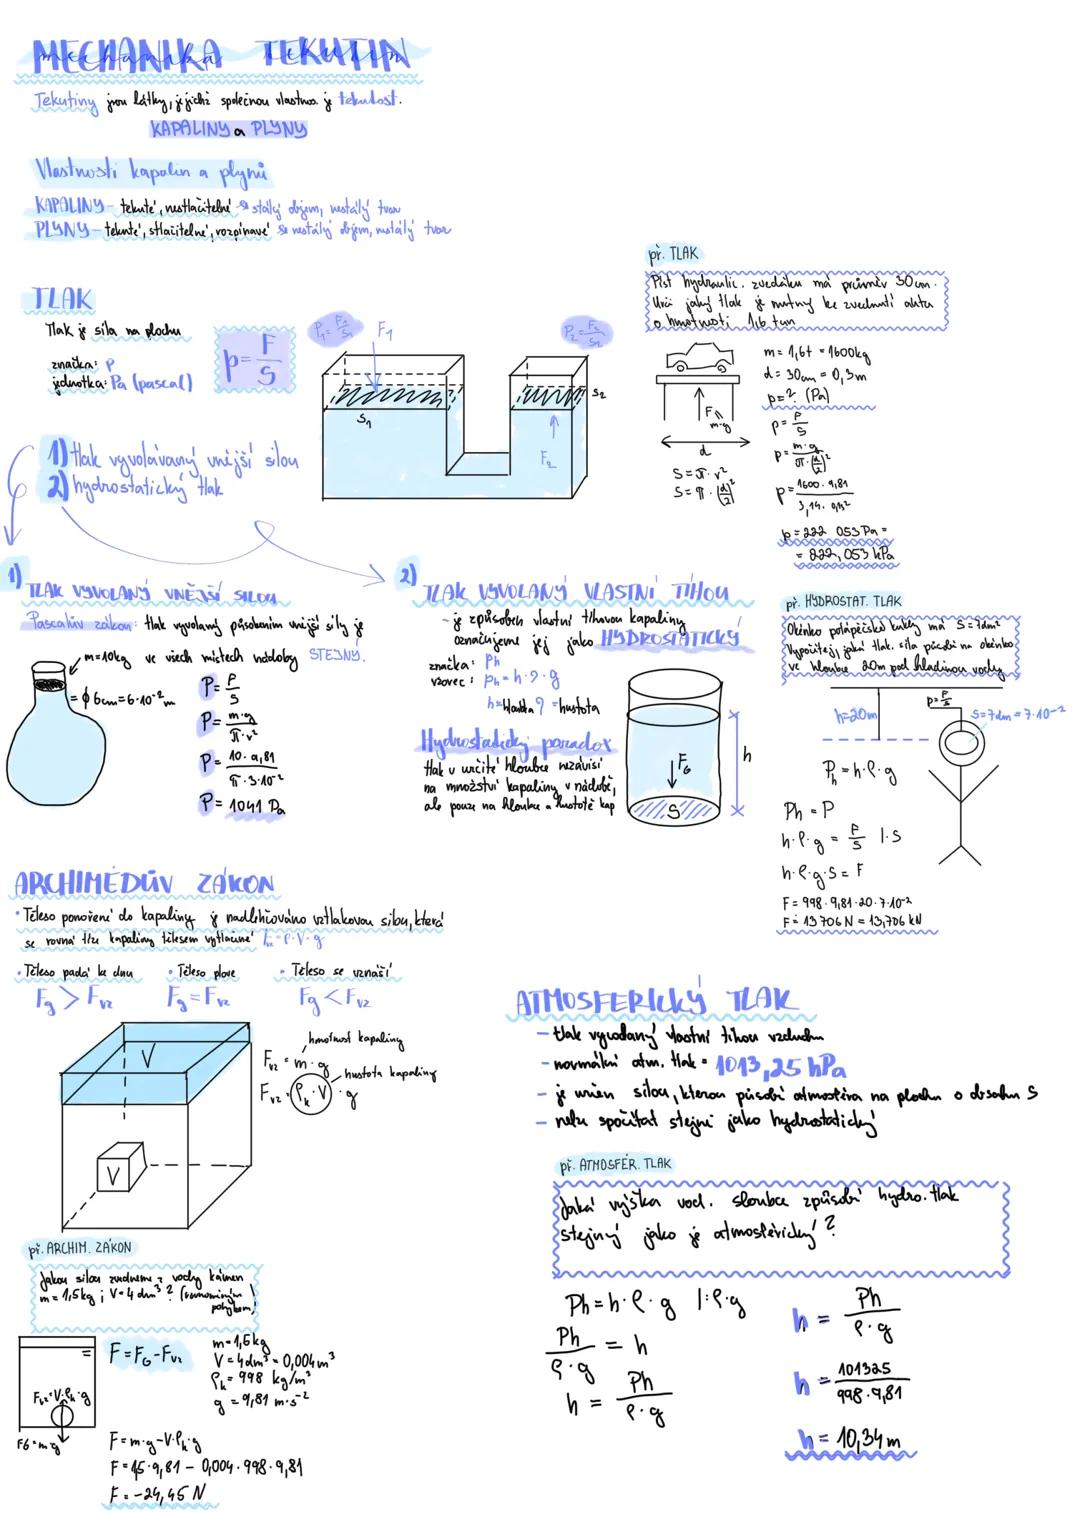 MECHANIKA TEKUTIN
Tekutiny jsou látky, jejichž společnou vlastnos. je tekutost.
KAPALINY a PLYNY
Vlastnosti kapalin a plynů
KAPALINY - tekuté, nestlačitelné stálý objem, nestálý tvar
PLYNY - tekuté, stlačitelné, rozpínavé nestálý objem, nestálý tvar
TLAK
Tlak je síla na plochu
značka: p
jednotka: Pa (pascal)
p = F/S
P₁ = F₁/S₁
F₁
P₂ = F₂/S₂
S₁
S₂
F₂
1) tlak vyvolávaný vnější silou
2) hydrostatický tlak
př. TLAK
Píst hydraulic. zvedáku má průměr 30 cm.
Urči jaký tlak je nutný ke zvednutí auta
o hmotnosti 1,6 tun
F
m·g
d
S = π · r²
S = π · (d/2)²
m = 1,6t = 1600kg
d = 30cm = 0,3m
p = ? (Pa)
p = F/S
p = m·g / π·(d/2)²
p = 1600 · 9,81 / 3,14 · 0,15²
p = 222 053 Pa =
= 222,053 kPa
1) TLAK VYVOLANÝ VNĚJŠÍ SILOU
Pascalův zákon: tlak vyvolaný působením vnější síly je
ve všech místech nádoby STEJNÝ.
m = 10kg
= ϕ 6cm = 6·10⁻² m
P = F/S
P = m·g / π·r²
P = 10·9,81 / π·3·10⁻²
P = 1041 Pa
2) TLAK VYVOLANÝ VLASTNÍ TÍHOU
- je způsoben vlastní tíhovou kapaliny
označujeme jej jako HYDROSTATICKÝ
značka: Ph
vzorec: Ph = h · ρ · g
h = hloubka ρ = hustota
Hydrostatický paradox
tlak v určité hloubce nezávisí
na množství kapaliny v nádobě,
ale pouze na hloubce a hustotě kap
F_G
S
h
př. HYDROSTAT. TLAK
Okénko potápěčské kukly má S = 7dm²
Vypočítej, jaká tlak. síla působí na okénko
ve hloubce 20m pod hladinou vody
h = 20m
p = F/S
S = 7dm = 7·10⁻²
P_h = h · ρ · g
Ph = P
h · ρ · g = F/S | · S
h · ρ · g · S = F
F = 998 · 9,81 · 20 · 7·10⁻²
F = 13 706 N = 13,706 kN
ARCHIMÉDŮV ZÁKON
• Těleso ponořené do kapaliny je nadlehčováno vztlakovou silou, která
se rovná tíze kapaliny tělesem vytlačené F_vz = ρ·V·g
• Těleso padá ke dnu • Těleso plove • Těleso se vznáší
Fg > Fvz Fg = Fvz Fg < Fvz
V
V
hmotnost kapaliny
Fvz = m · g
hustota kapaliny
Fvz = ρₖ · V · g
př. ARCHIM. ZÁKON
Jakou silou zvedneme z vody kámen
m = 1,5kg ; V = 4 dm³ ? (rovnoměrným
pohybem)
Fvz = V·ρₖ·g
FG = m·g
F = F_G - Fvz
m = 1,5kg
V = 4dm³ = 0,004 m³
ρₖ = 998 kg/m³
g = 9,81 m·s⁻²
F = m·g - V·ρₖ·g
F = 1,5·9,81 - 0,004·998·9,81
F = -24,45 N
ATMOSFERICKÝ TLAK
- tlak vyvolaný vlastní tíhou vzduchu
- normální atm. tlak = 1013,25 hPa
- je určen silou, kterou působí atmosféra na plochu o obsahu S
- nelze spočítat stejně jako hydrostatický
př. ATMOSFÉR. TLAK
Jaká výška vod. sloubce způsobí hydro. tlak
stejný jako je atmosférický ?
Ph = h · ρ · g | : ρ · g
Ph / ρ·g = h
h = Ph / ρ·g
h = Ph / ρ·g
h = 101325 / 998·9,81
h = 10,34 m